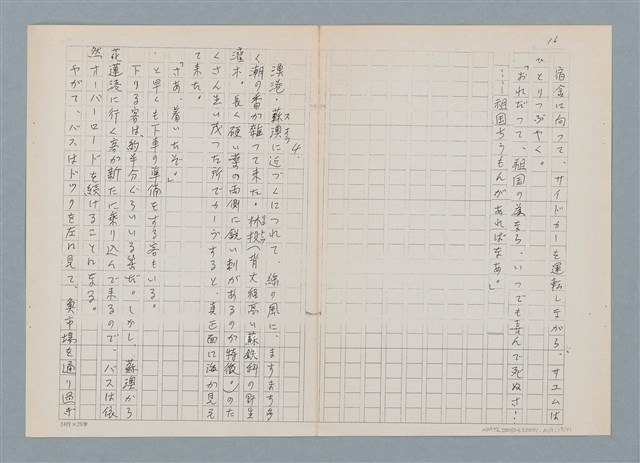 16
宿舎に向って、サイドカーを運転しながら、サエムは
ひとりつぶやく。
「おれだって、祖国の為なら、いつでも喜んで死ぬさ！
……祖国ちうもんがあればなあ。」
4.
漁港・蘇澳に近づくにつれて、緑の風に、ますます多
スオウ
く潮の香が雑って来た。林投（背丈程高い蘇鉄科の野生
灌木。長く硬い葉の両側に鋭い刺があるのが特徴。）のた
くさん生い茂った所でカーブすると、真正面に海が見え
て来た。
「さあ、着いたぞ。」
と早くも下車の準備をする客もいる。
下りる客は、約半分ぐらいいる筈だ。しかし、蘇澳から
花蓮港に行く客が新たに乗り込んで来るので、バスは依
然オーバーロードを続けることになる。
やがて、バスはドックを左に見て、魚市場を通り過ぎ